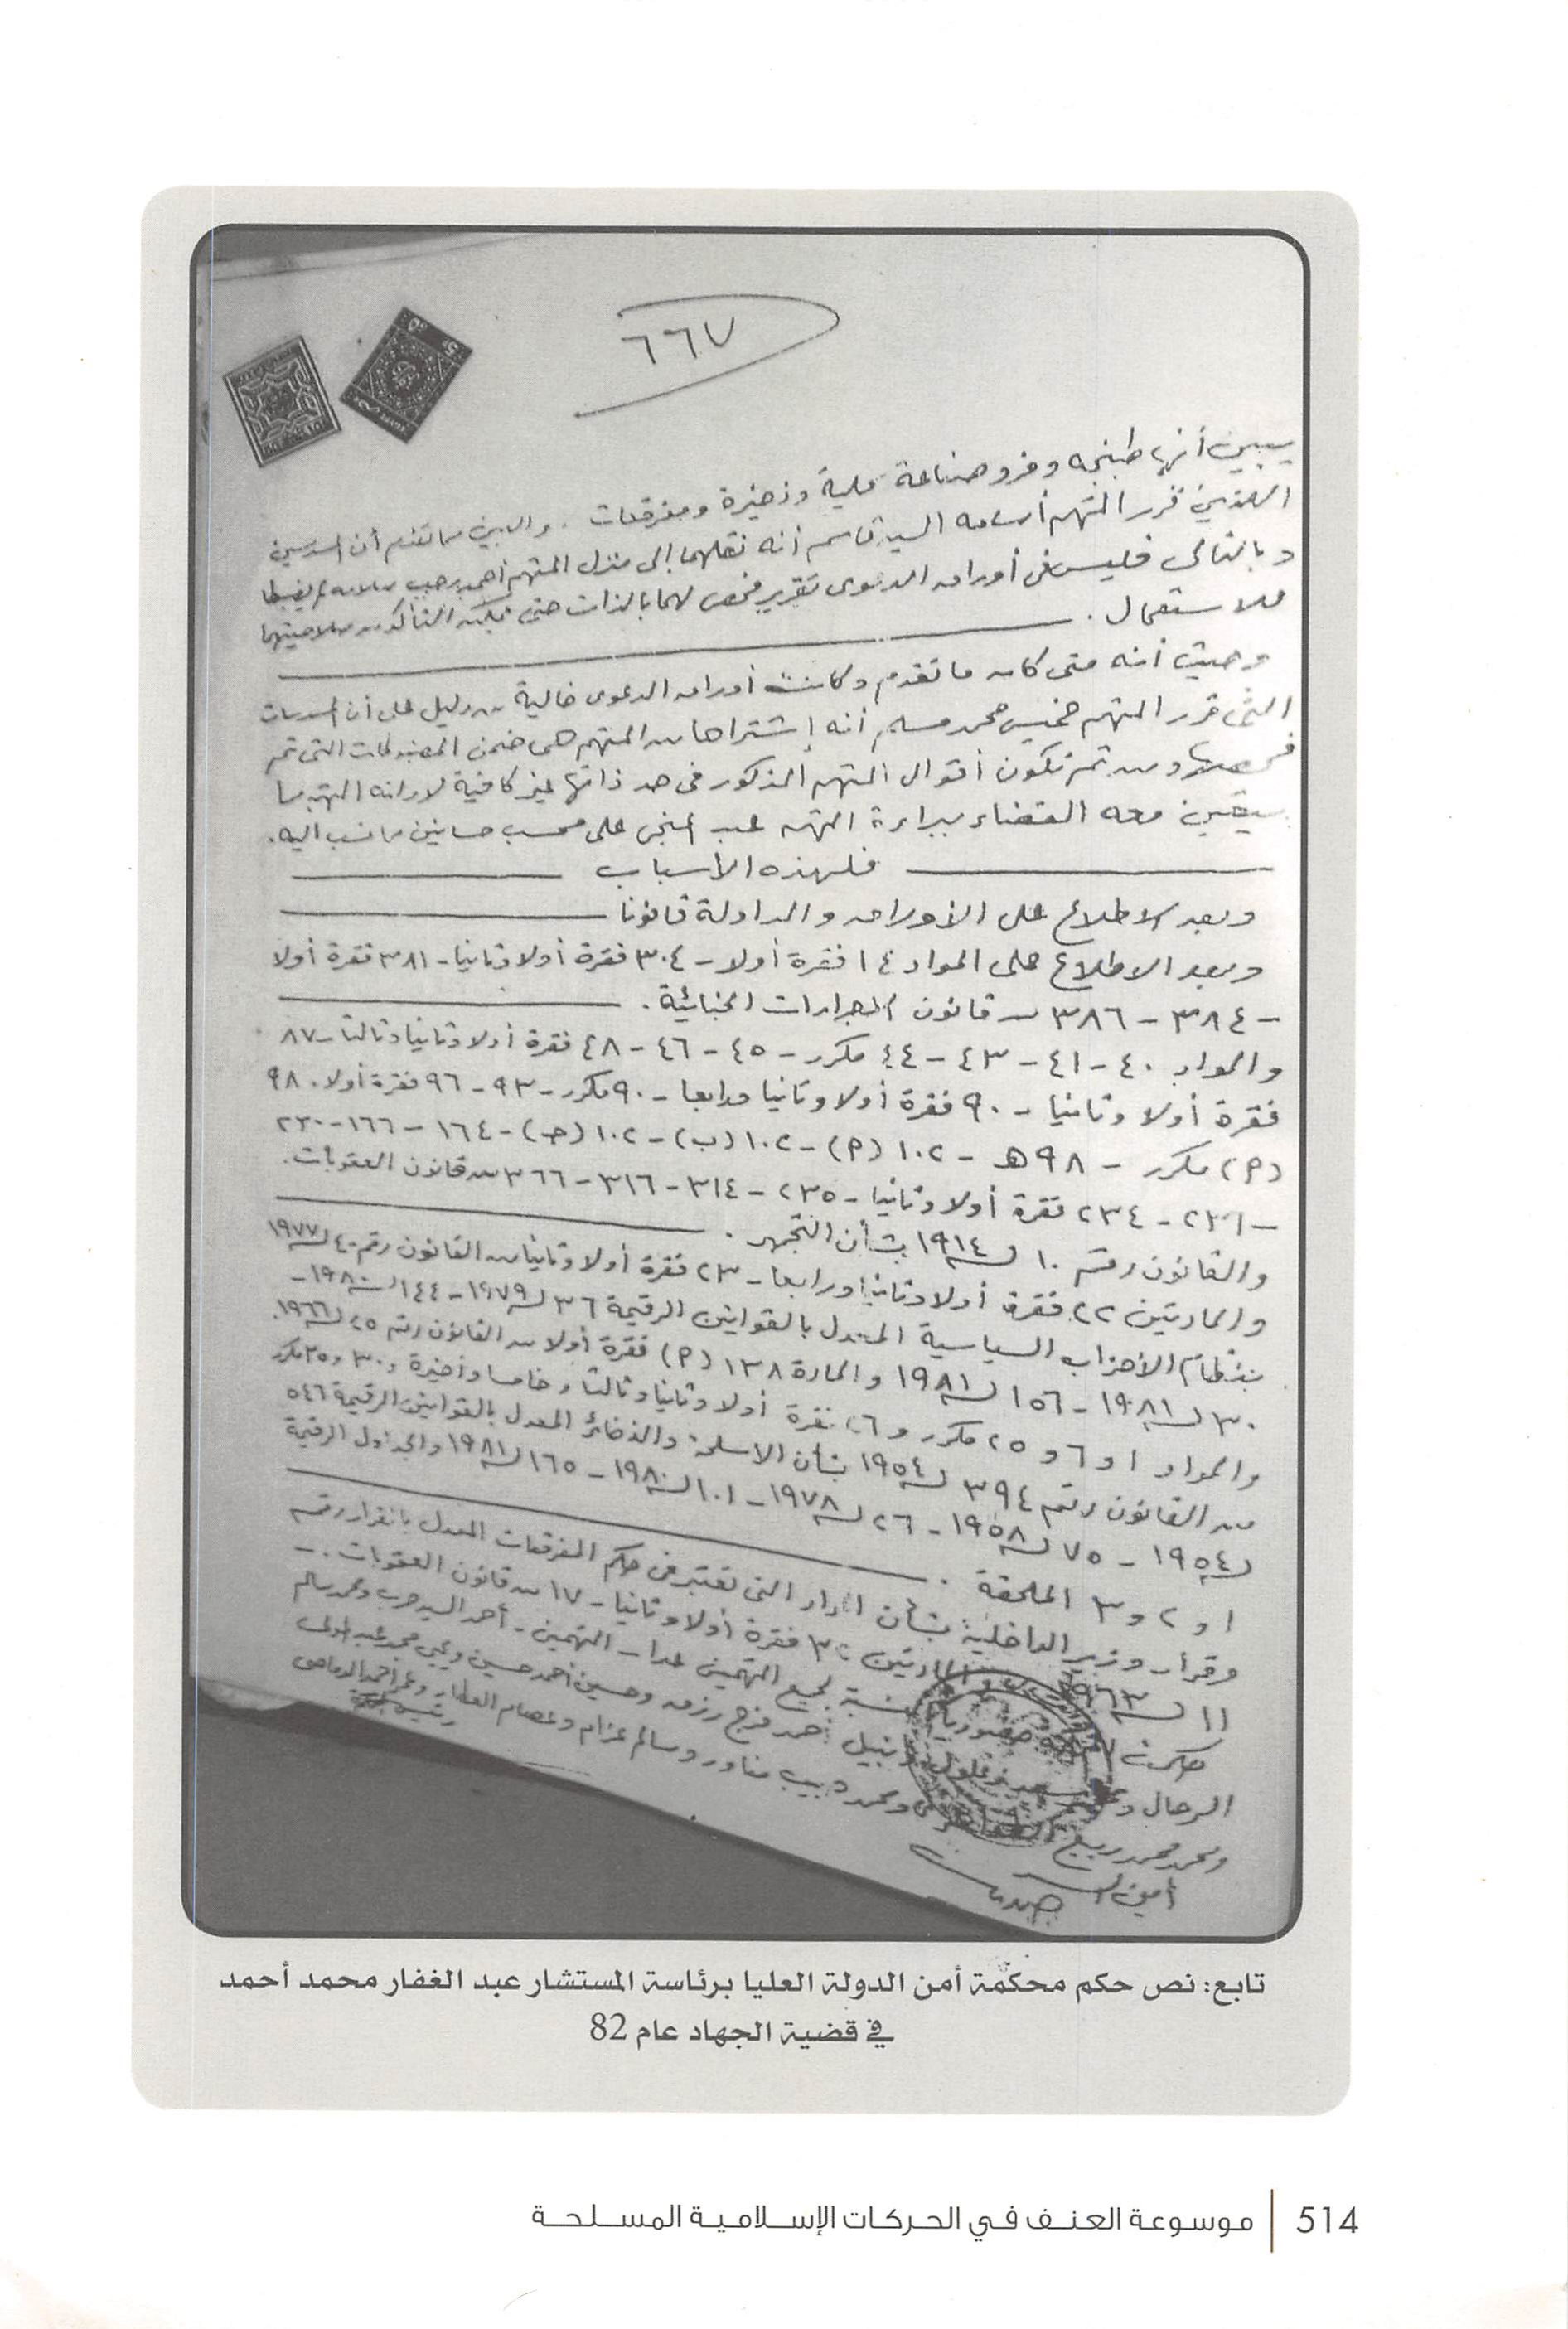 ٦٦٧
يبين أنها طبنجه وفرد صناعة محلية وذخيرة ومفرقعات . والبين مما تقدم أن المسدسين
اللذين قرر المتهم أسامه السيد قاسم أنه نقلهما إلى منزل المتهم أحمد رجب سلامه لم يضبطا
وبالتالى فليس فى أوراق الدعوى تقرير فحص لهما بالذات حتى يمكن التأكد من صلاحيتهما
للاستعمال .
وحيث أنه متى كان ما تقدم وكانت أوراق الدعوى خالية من دليل على أن المسدسات
التى قرر المتهم خميس محمد مسلم أنه إشتراها من المتهم هى ضمن المضبوطات التى تم
فحصها ومن ثم تكون أقوال المتهم المذكور فى حد ذاتها غير كافية لادانه المتهم مما
يتعين معه القضاء ببراءة المتهم على محسب حسانين مما نسب اليه .
فلهذه الأسباب
وبعد الاطلاع على الأوراق والمداولة قانونا
وبعد الاطلاع على المواد ١٤ فقرة أولا - ٣٠٤ فقرة أولا وثانيا - ٣٨١ فقرة أولا
- ٣٨٤ - ٣٨٦ من قانون الاجراءات الجنائية .
والمواد ٤٠ - ٤١ - ٤٣ - ٤٤ مكرر - ٤٥ - ٤٦ - ٤٨ فقرة أولا وثانيا وثالثا - ٨٧
فقرة أولا وثانيا - ٩٠ فقرة أولا وثانيا ورابعا - ٩٠ مكرر - ٩٣ - ٩٦ فقرة أولا . ٩٨
(أ) مكرر - ٩٨ هـ - ١٠٢ (أ) - ١٠٢ (ب) - ١٠٢ (جـ) - ١٦٤ - ١٦٦ - ٢٣٠
- ٢٣١ - ٢٣٤ فقرة أولا وثانيا - ٢٣٥ - ٣١٤ - ٣١٦ - ٣٦٦ من قانون العقوبات .
والقانون رقم ١٠ لسنة ١٩١٤ بشأن التجمهر .
والمادتين ٢٢ فقرة أولا وثانيا ورابعا - ٢٣ فقرة أولا وثانيا من القانون رقم ٤٠ لسنة ١٩٧٧
بنظام الأحزاب السياسية المعدل بالقوانين الرقيمة ٣٦ لسنة ١٩٧٩ - ١٤٤ لسنة ١٩٨٠ -
٣٠ لسنة ١٩٨١ - ١٥٦ لسنة ١٩٨١ والمادة ١٣٨ (أ) فقرة أولا من القانون رقم ٢٥ لسنة ١٩٦٦ .
والمواد ١ و ٦ و ٢٥ مكرر و ٢٦ فقرة أولا وثانيا وثالثا و خامسا وأخيرة و ٣٠ و ٣٥ مكرر
من القانون رقم ٣٩٤ لسنة ١٩٥٤ بشأن الاسلحة والذخائر المعدل بالقوانين الرقيمة ٥٤٦
لسنة ١٩٥٤ - ٧٥ لسنة ١٩٥٨ - ٢٦ لسنة ١٩٧٨ - ١٠١ لسنة ١٩٨٠ - ١٦٥ لسنة ١٩٨١ والجداول الرقيمة
١ و ٢ و ٣ الملحقة .
وقرار وزير الداخلية بشأن المواد التى تعتبر فى حكم المفرقعات المعدل بالقرار رقم
١١ لسنة ١٩٦٣ والمادتين فقرة أولا وثانيا - ١٧ من قانون العقوبات . -
حكمت لجميع المتهمين عدا - المتهمين - أحمد السيد رجب ومحمد سالم
الرحال و نبيل أحمد فرج رزق وحسين أحمد حسين ويحيى محمد عبد المولى
ومحمد محمد ربيع ومحمد مناور وسالم عزام وعصام العطار وعمر أحمد
أمين السر
تابع: نص حكم محكمة أمن الدولة العليا برئاسة المستشار عبد الغفار محمد أحمد
في قضية الجهاد عام 82
514 | موسوعة العنف في الحركات الإسلامية المسلحة